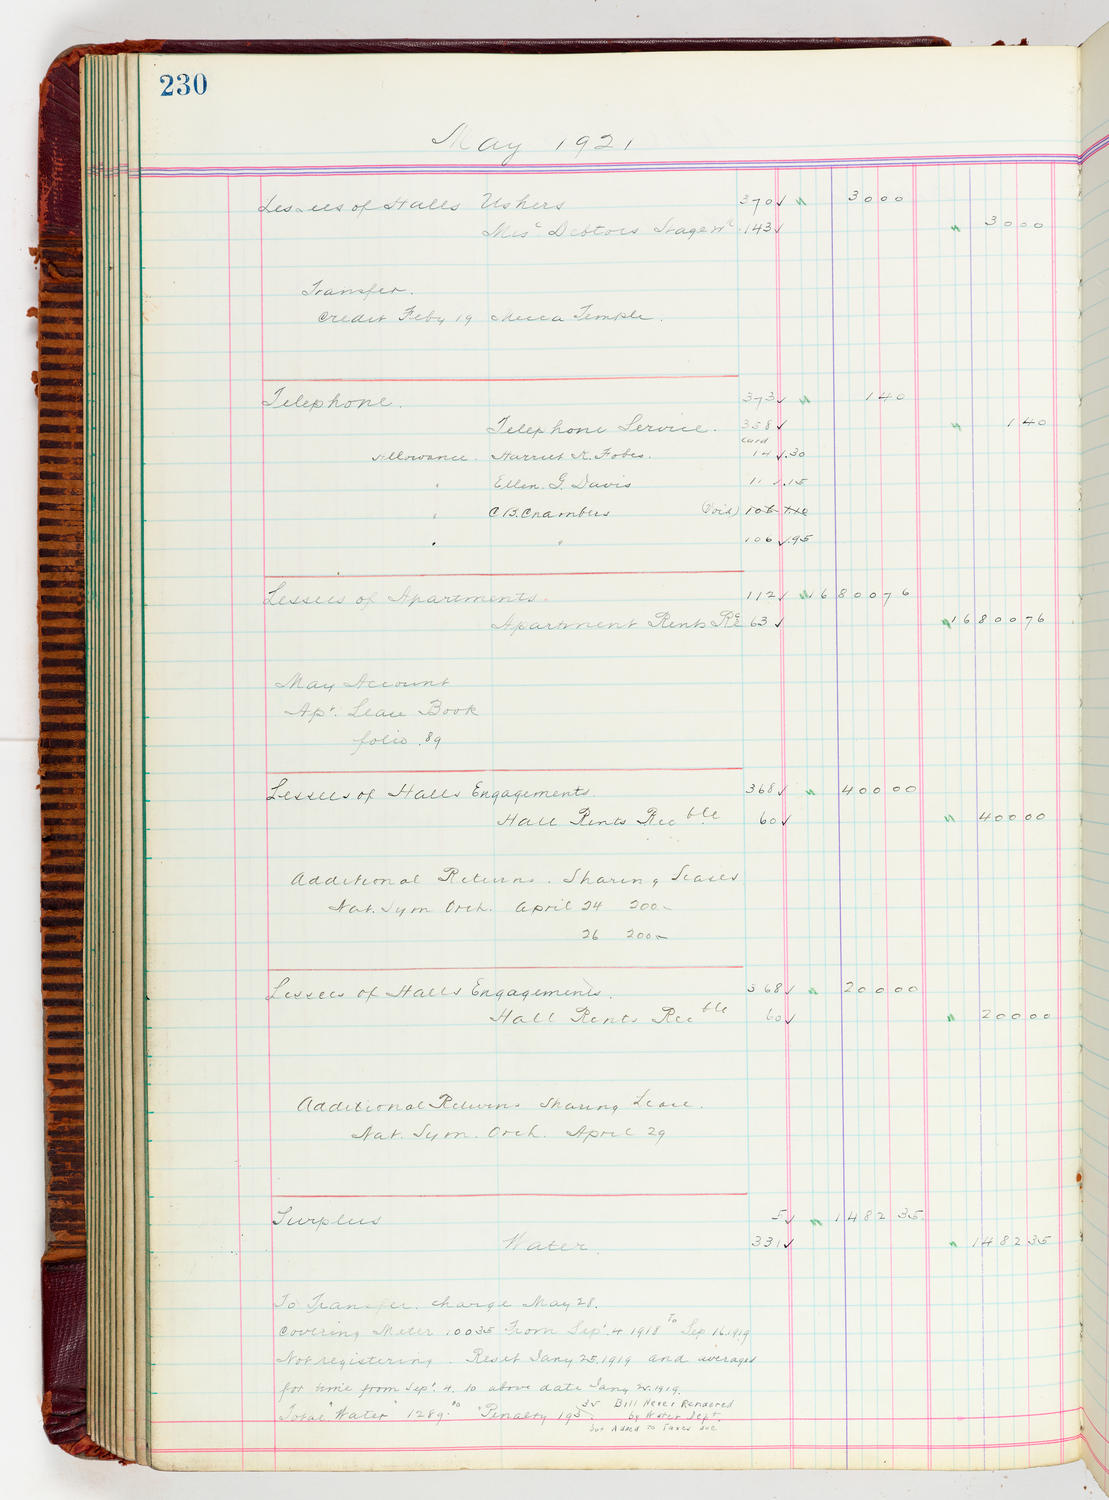 230
May 1921
Lessees of Halls Ushers 370✓ 30 00
Misc Debtors Stage 143✓ 30 00
Transfer.
Credit Feby 19 Mecca Temple.
Telephone. 373✓ 1 40
Telephone Service. 358✓ 1 40
card
Allowance. Harriet K. Fobes. 14✓.30
" Ellen. G. Davis 11✓.15
" C.B. Chambers (Void) 106
" " 106✓.95
Lessees of Apartments. 112✓ 16800 76
Apartment Rents Re 63✓ 16800 76
May Account
Apt. Lease Book
folio. 89
Lessees of Halls Engagements. 368✓ 400 00
Hall Rents Rec ble 60✓ 400 00
Additional Returns. Sharing Leases
Nat. Sym Orch. April 24 200.-
26 200.-
Lessees of Halls Engagements. 368✓ 200 00
Hall Rents Rec ble 60✓ 200 00
Additional Returns Sharing Lease.
Nat. Sym. Orch. April 29
Surplus 5✓ 1482 35
Water. 331✓ 1482 35
To Transfer. charge May 28.
Covering Meter 10035 From Sept. 4 1918 To Sep 16.1919
Not registering. Reset Jany 25,1919 and averaged
for time from Sept. 4. to above date Jany 25.1919.
Total "Water" 1289.00 "Penalty 193.35 Bill Never Rendered
by Water Dept.
but Added to Taxes due